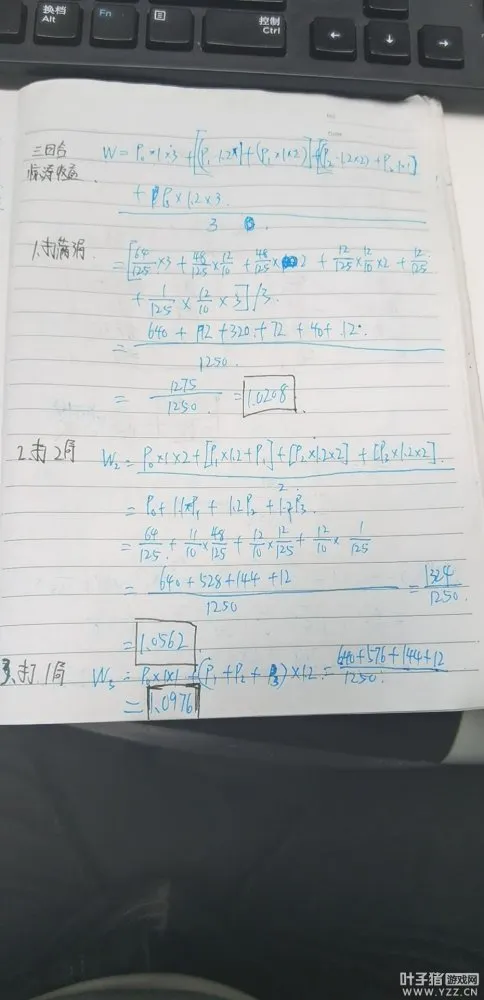 换档
Alt
Fn
控制
Ctrl
三回合
W = P₀×1×3 + [(P₁·1.2×1) + (P₁×1×2)] + [(P₂·1.2×2) + P₂·1×1]
+ P₃×1.2×3
3
1.打满
= [64/125×3 + 48/125×12/10 + 48/125×2 + 12/125×12/10×2 + 12/125
+ 1/125×12/10×3]/3
= 640 + 192 + 320 + 72 + 40 + 12
1250
= 1275/1250 = 1.0208
2.打2局 W₂ = P₀×1×2 + [P₁×1.2+P₁] + [P₂×1.2×2] + [P₃×1.2×2]
2
= P₀ + 1.1×P₁ + 1.2P₂ + 1.2P₃
= 64/125 + 11/10×48/125 + 12/10×12/125 + 12/10×1/125
= 640+528+144+12/1250 = 1324/1250
= 1.0562
3.打1局 W₃ = P₀×1×1 + (P₁+P₂+P₃)×1.2 = 640+576+144+12/1250
= 1.0976
叶子猪游戏网
WWW.YZZ.CN